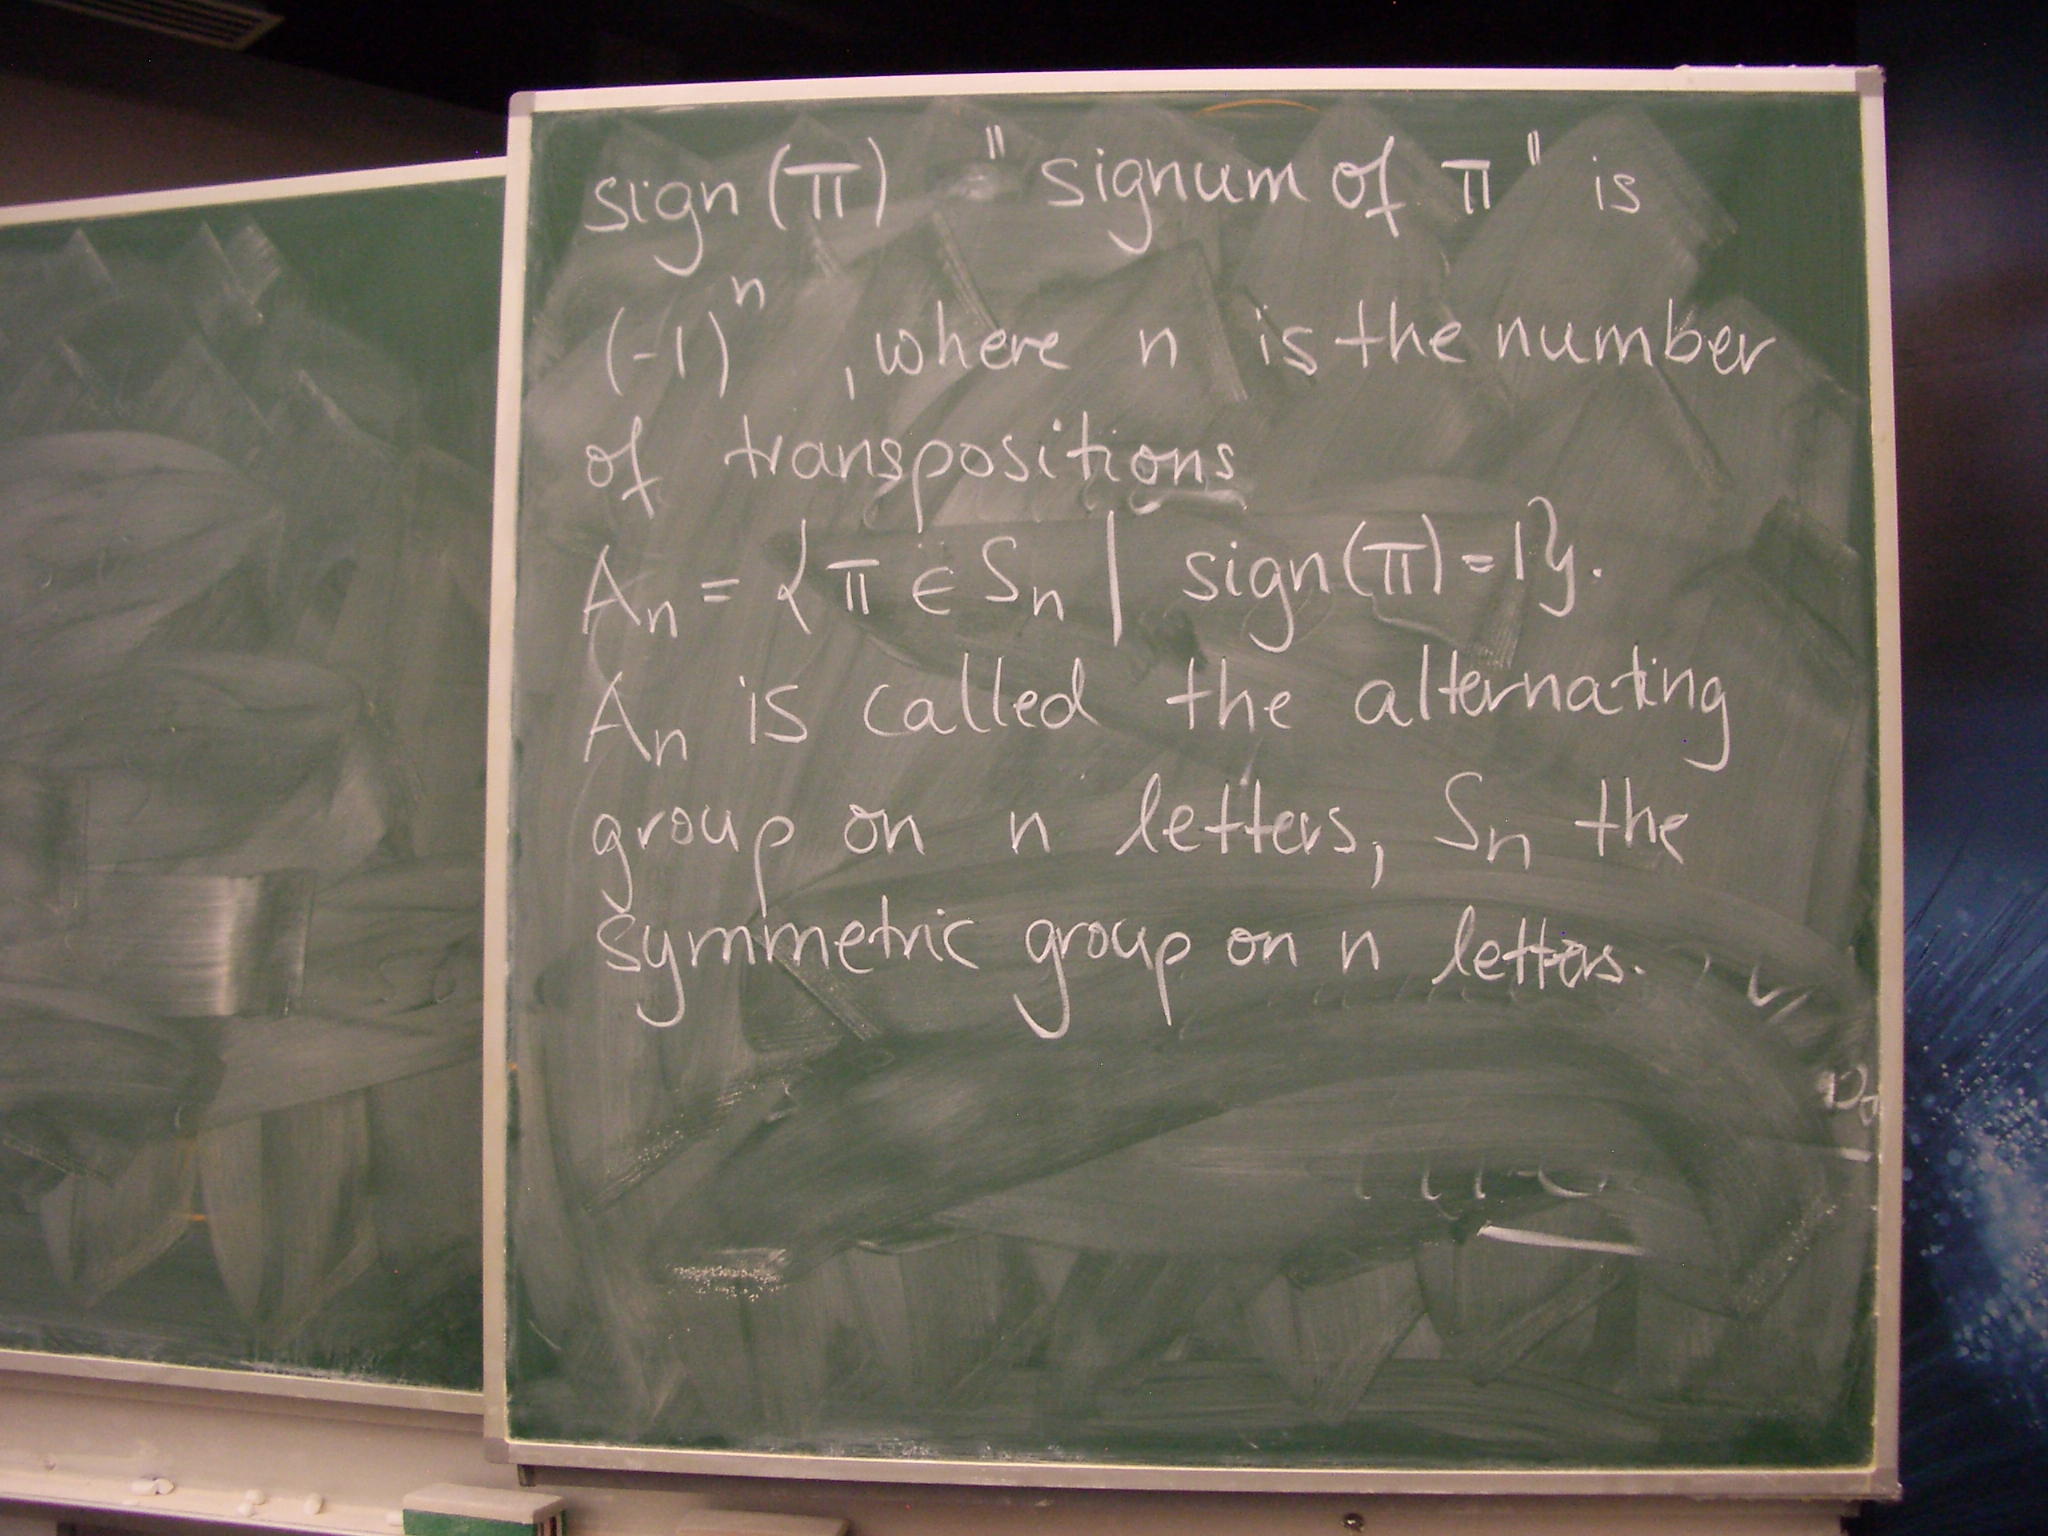 sign(π) "signum of π" is
(-1)ⁿ, where n is the number
of transpositions
Aₙ = {π ∈ Sₙ | sign(π)=1}.
Aₙ is called the alternating
group on n letters, Sₙ the
symmetric group on n letters.